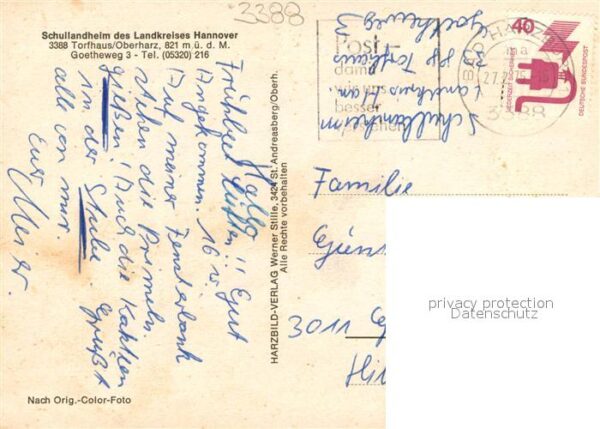 Schullandheim des Landkreises Hannover
3388 Torfhaus/Oberharz, 821 m.ü.d.M.
Goetheweg 3 - Tel. (05320) 216
3388
Hallo
Frühbeet Lüften!! Gut
Angekommen. 16
Auf meiner Fensterbank
stehen die Primeln.
gießen! Auch die Kakteen
in der Stube. Grüßt
alle von mir.
Euer
HARZBILD-VERLAG Werner Stille, 3424 St. Andreasberg/Oberh.
Alle Rechte vorbehalten
Nach Orig.-Color-Foto
Schullandheim
Landkreis Han.
3388 Torfhaus
Goetheweg 3
Post-
damit
wir uns
besser
verstehen
HARZ
3388
40
JEDERZEIT SICHERHEIT
DEUTSCHE BUNDESPOST
Familie
3011
privacy protection
Datenschutz